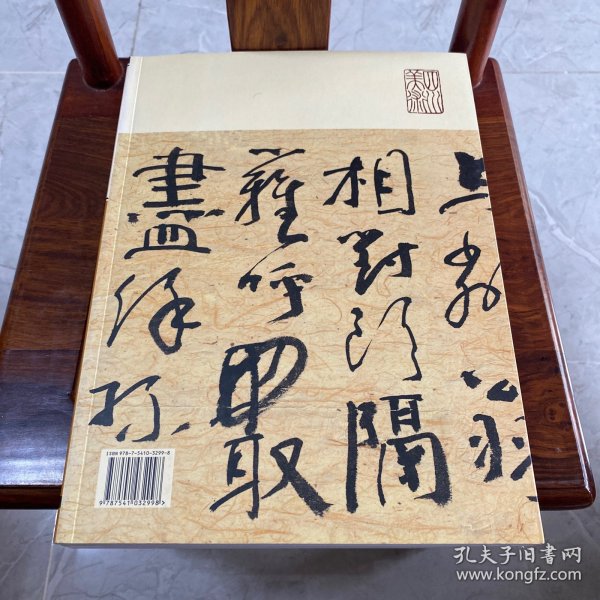 与鄰翁
相對飲隔
籬呼取
盡餘杯
ISBN 978-7-5410-3299-8
9 787541 032998 >
孔夫子旧书网
www.kongfz.com